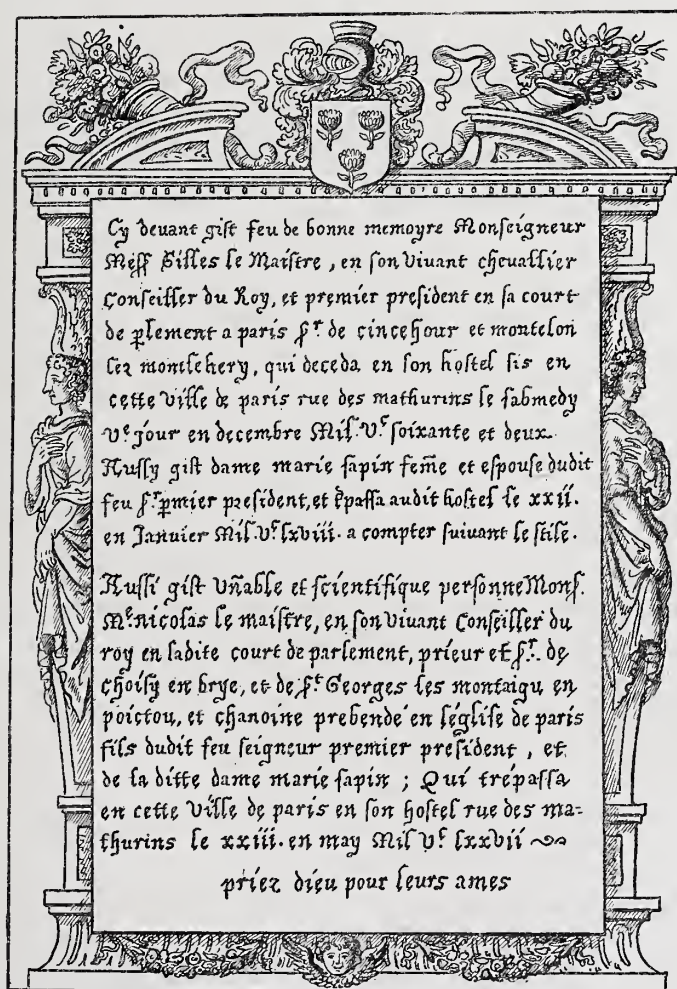 Cy devant gist feu de bonne memoyre Monseigneur
Mess Gilles le Maistre, en son vivant chevallier
Conseiller du Roy, et premier president en sa court
de plement a paris sr. de cincehour et montelon
lez montlehery, qui deceda en son hostel sis en
cette ville de paris rue des mathurins le sabmedy
ve jour en decembre Mil. Vc soixante et deux.
Aussy gist dame marie sapin feme et espouse dudit
feu sr. pmier president, et tpassa audit hostel le xxii.
en Janvier Mil Vc. lxviii. a compter suivant le stile.
Aussi gist vnable et scientifique personne Mons.
Me. nicolas le maistre, en son vivant Conseiller du
roy en ladite court de parlement, prieur et sr. de
choisy en brye, et de st. Georges les montaigu en
poictou, et chanoine prebende en l'eglise de paris
fils dudit feu seigneur premier president, et
de la ditte dame marie sapin ; Qui trépassa
en cette ville de paris en son hostel rue des ma-
thurins le xxiii. en may Mil Vc lxxvii
priez dieu pour leurs ames